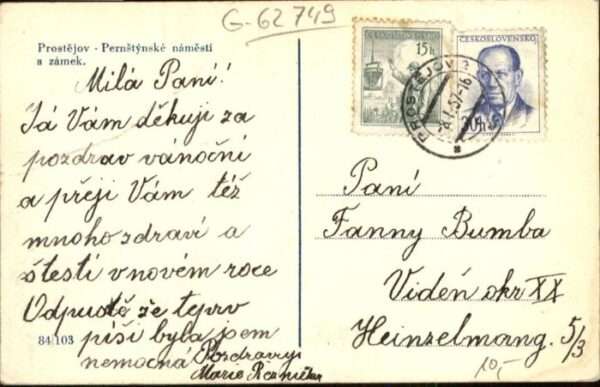 G-62749
Prostějov - Pernštýnské náměstí
a zámek.
ČESKOSLOVENSKO
15h
ČESKOSLOVENSKO
30h
PROSTĚJOV 2
Milá Paní!
Já Vám děkuji za
pozdrav vánoční
a přeji Vám též
mnoho zdraví a
štestí v novém roce
Odpustě že teprv
píši byla jsem
nemocná Pozdravuji
Marie
84/103
Paní
Fanny Bumba
Videń okr XX
Heinzelmang. 5/3
10,-